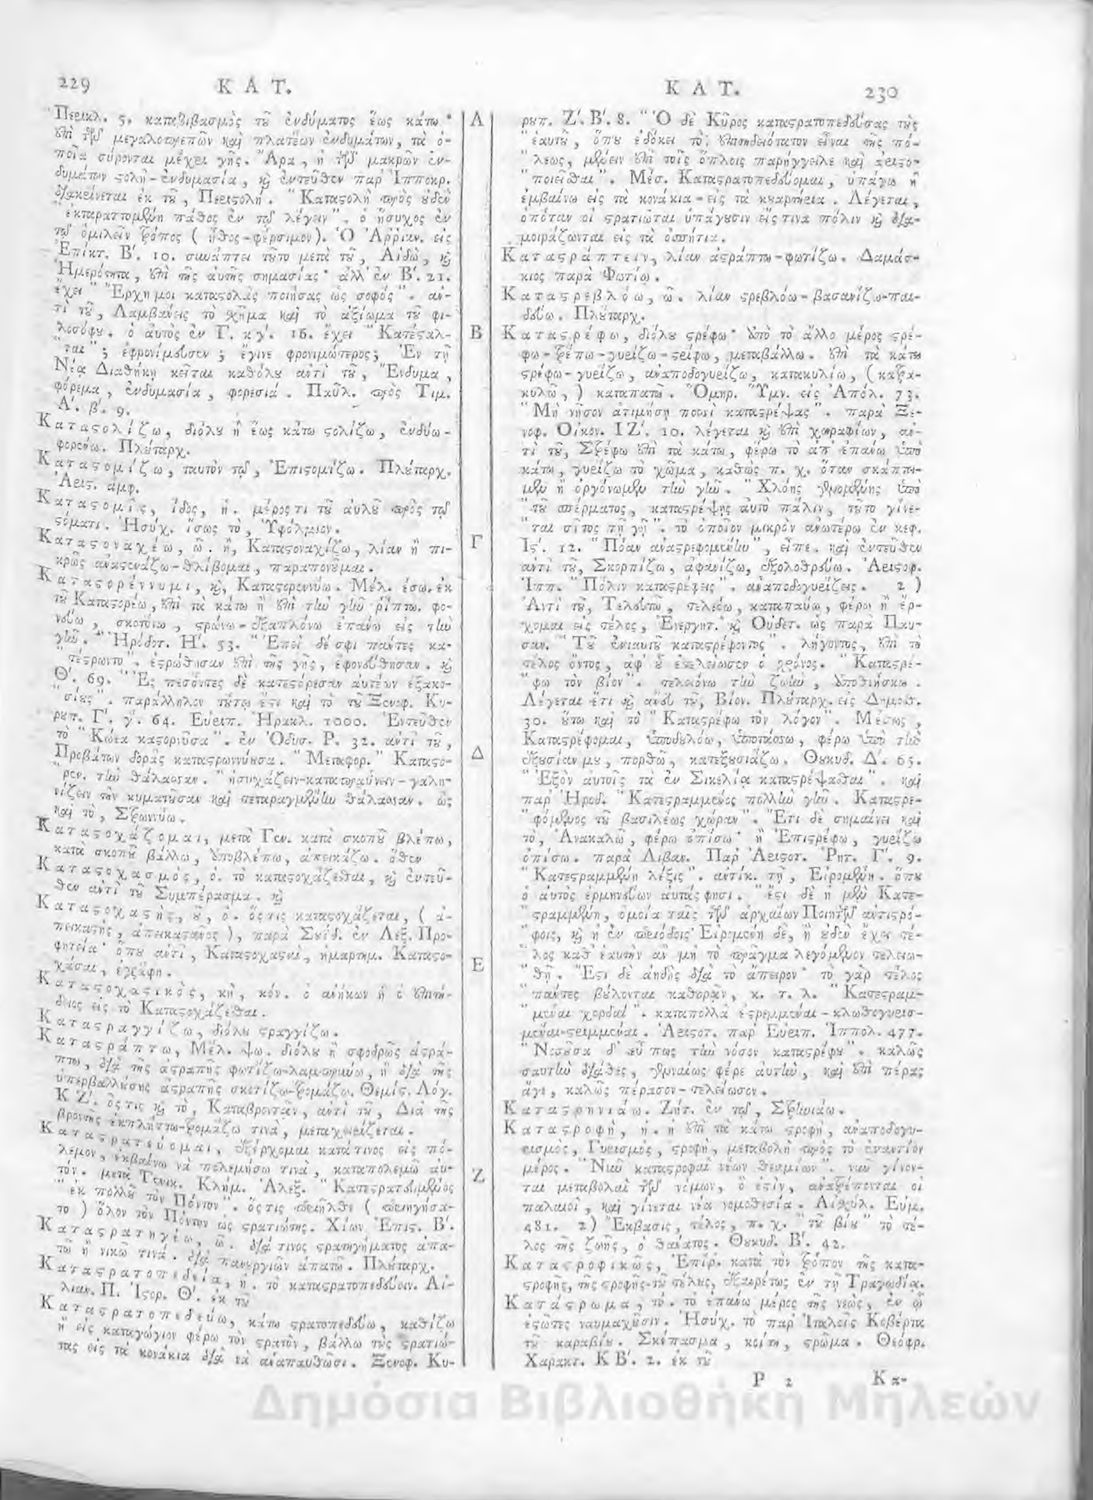 229 Κ Α Τ.
Περικλ. 5. καταβιβασμὸς τοῦ ἐνδύματος ἕως κάτω·
ἐπὶ τῶν μεγαλοπρεπῶν καὶ πλατέων ἐνδυμάτων, τὰ ὁ-
ποῖα σύρονται μέχρι γῆς. Ἄρα, ἡ τῶν μακρῶν ἐν-
δυμάτων στολὴ-ἐνδυμασία, καὶ ἐντεῦθεν παρ' Ἱπποκρ.
διακρίνεται ἐκ τοῦ, Περιστολή. "Καταστολὴ πρὸς οὐδὲν
"ἐκταραττομένη πάθος ἐν τῷ λέγειν". ὁ ἥσυχος ἐν
τῷ ὁμιλεῖν τρόπος ( ἦθος-φέρσιμον). Ὁ Ἀῤῥιαν. εἰς
Ἐπίκτ. Β'. 10. συνάπτει τοῦτο μετὰ τοῦ, Αἰδὼ, καὶ
Ἡμερότητα, ἐπὶ τῆς αὐτῆς σημασίας· ἀλλ' ἐν Β'. 21.
ἔχει "Ἔρχῃ μοι καταστολὰς ποιήσας ὡς σοφός". ἀν-
τὶ τοῦ, Λαμβάνεις τὸ σχῆμα καὶ τὸ ἀξίωμα τοῦ φι-
λοσόφου. ὁ αὐτὸς ἐν Γ. κγ'. 16. ἔχει "Κατέσταλ-
"ται"; ἐφρονίμευσεν; ἔγινε φρονιμώτερος; Ἐν τῇ
Νέᾳ Διαθήκῃ κεῖται καθόλου ἀντὶ τοῦ, Ἔνδυμα,
φόρεμα, ἐνδυμασία, φορεσιά. Παῦλ. πρὸς Τιμ.
Α'. β'. 9.
Καταστολίζω, διόλου ἢ ἕως κάτω στολίζω, ἐνδύω-
φορένω. Πλούταρχ.
Καταστομίζω, ταυτὸν τῷ, Ἐπιστομίζω. Πλούταρχ.
Ἀριστ. ἀμφ.
Καταστομὶς, ίδος, ἡ. μέρος τι τοῦ αὐλοῦ πρὸς τῷ
στόματι. Ἡσύχ. ἴσως τὸ, Ὑφόλμιον.
Καταστοναχέω, ῶ. ἢ, Καταστοναχίζω, λίαν ἢ πι-
κρῶς ἀναστενάζω-θλίβομαι, παραπονοῦμαι.
Καταστορέννυμι, καὶ, Καταστορεννύω. Μέλ. έσω. ἐκ
τοῦ Καταστορέω, ἐπὶ τὰ κάτω ἢ ἐπὶ τὴν γῆν ῥίπτω. φο-
νεύω, σκοτόνω, στρώνω-ἐξαπλόνω ἐπάνω εἰς τὴν
γῆν. Ἡρόδοτ. Η'. 53. "Ἐπεὶ δέ σφι πάντες κα-
"τέστρωντο. ἐστρώθησαν ἐπὶ τῆς γῆς, ἐφονεύθησαν. καὶ
Θ'. 69. "Ἐς πεσόντες δὲ κατεστόρεσαν αὐτέων ἑξακο-
"σίους". παράλληλον τούτῳ ἔστι καὶ τὸ τοῦ Ξενοφ. Κυ-
ρουπ. Γ'. γ'. 64. Εὐριπ. Ἡρακλ. 1000. Ἐντεῦθεν
τὸ "Κώεα καστορνῦσα". ἐν Ὀδυσ. Ρ. 32. ἀντὶ τοῦ,
Προβάτων δορὰς καταστρωννύησα. "Μεταφορ." Κατεστό-
"ρεν. τὴν θάλασσαν. "ἡσυχάζειν-καταπραΰνειν-γαλη-
νίζειν τὴν κυματοῦσαν καὶ τεταραγμένην θάλασσαν. ὡς
καὶ τὸ, Στρωννύω.
Καταστοχάζομαι, μετὰ Γεν. κατὰ σκοποῦ βλέπω,
κατὰ σκοποῦ βάλλω, ὑποβλέπω, ἀπεικάζω. ὅθεν
Καταστοχασμὸς, ὁ. τὸ καταστοχάζεσθαι, καὶ ἐντεῦ-
θεν ἀντὶ τοῦ Συμπέρασμα. καὶ
Καταστοχαστὴς, οῦ, ὁ. ὅστις καταστοχάζεται, ( ἀ-
πεικαστὴς, ἀπεικαστάνος ), παρὰ Σουΐδ. ἐν Λεξ. Προ-
φητεία· ὅπου ἀντὶ, Καταστοχασταὶ, ἡμαρτημ. Καταστο-
χάσαι, ἐγράφη.
Καταστοχαστικὸς, κὴ, κόν. ὁ ἀνήκων ἢ ὁ ἐπιτή-
δειος εἰς τὸ Καταστοχάζεσθαι.
Καταστραγγίζω, διόλου στραγγίζω.
Καταστράπτω, Μέλ. ψω. διόλου ἢ σφοδρῶς ἀστρά-
πτω, διὰ τῆς ἀστραπῆς φωτίζω-λαμπρύνω, ἢ διὰ τῆς
ὑπερβαλλούσης ἀστραπῆς σκοτίζω-τρομάζω. Θεμίς. Λόγ.
ΚΖ'. ὅστις καὶ τὸ, Καταβροντᾶν, ἀντὶ τοῦ, Διὰ τῆς
βροντῆς ἐκπλήττω-τρομάζω τινὰ, μεταχειρίζεται.
Καταστρατεύομαι, ἐξέρχομαι κατά τινος εἰς πό-
λεμον, ἐκβαίνω νὰ πολεμήσω τινὰ, καταπολεμῶ αὐ-
τόν. μετὰ Γενικ. Κλήμ. Ἀλεξ. "Κατεστρατευμένος
"ἐκ πολλοῦ τὸν Πόντον". ὅστις διῆλθε ( περιηγήσα-
το ) ὅλον τὸν Πόντον ὡς στρατιώτης. Χίων. Ἐπις. Β'.
Καταστρατηγέω, ῶ. διά τινος στρατηγήματος ἀπα-
τῶ ἢ νικῶ τινά. διὰ πανουργιῶν ἀπατῶ. Πλούταρχ.
Καταστρατοπεδεία, ἡ. τὸ καταστρατοπεδεύειν. Αἰ-
λιαν. Π. Ἱστορ. Θ'. ἐκ τοῦ
Καταστρατοπεδεύω, κάτω στρατοπεδεύω, καθίζω
ἢ εἰς καταγώγιον φέρω τὸν στρατὸν, βάλλω τοὺς στρατιώ-
τας εἰς τὰ κονάκια διὰ νὰ ἀναπαυθῶσι. Ξενοφ. Κυ-
Α
Β
Γ
Δ
Ε
Ζ
Κ Α Τ. 230
ρουπ. Ζ'. Β'. 8. "Ὁ δὲ Κῦρος καταστρατοπεδεύσας τοὺς
"ἑαυτοῦ, ὅπου ἐδόκει τὸ ἐπιτηδειότατον εἶναι τῆς πό-
"λεως, μένειν ἐπὶ τοῖς ὅπλοις παρήγγειλε καὶ ἀριστο-
"ποιεῖσθαι". Μέσ. Καταστρατοπεδεύομαι, ὑπάγω ἢ
ἐμβαίνω εἰς τὰ κονάκια-εἰς τὰ κουαρτηεια. Λέγεται,
ὁπόταν οἱ στρατιῶται ὑπάγουσιν εἴς τινα πόλιν καὶ δια-
μοιράζωνται εἰς τὰ ὀσπήτια.
Καταστράπτειν, λίαν ἀστράπτω-φωτίζω. Δαμάσ-
κιος παρὰ Φωτίῳ.
Καταστρεβλόω, ῶ. λίαν στρεβλόω-βασανίζω-παι-
δεύω. Πλούταρχ.
Καταστρέφω, διόλου στρέφω· ὑπὸ τὸ ἄλλο μέρος στρέ-
φω-τρέπω-γυρίζω-στρίφω, μεταβάλλω. ἐπὶ τὰ κάτω
στρέφω-γυρίζω, ἀναποδογυρίζω, κατακυλίω, (κατρα-
κυλῶ,) καταπατῶ. Ὅμηρ. Ὕμν. εἰς Ἀπόλ. 73.
"Μὴ νῆσον ἀτιμήσῃ ποσσὶ καταστρέψας". παρὰ Ξε-
νοφ. Οἰκον. ΙΖ'. 10. λέγεται καὶ ἐπὶ χωραφίων, ἀν-
τὶ τοῦ, Στρέφω ἐπὶ τὰ κάτω, φέρω τὸ ἀπ' ἐπάνω ὑπὸ
κάτω, γυρίζω τὸ χῶμα, καθὼς π. χ. ὅταν σκάπτω-
μεν ἢ ὀργόνωμεν τὴν γῆν. "Χλόης γενομένης ὑπὸ
"τοῦ σπέρματος, καταστρέψῃς αὐτὸ πάλιν, τοῦτο γίνε-
"ται σῖτος τῇ γῇ". τὸ ὁποῖον μικρὸν ἀνωτέρω ἐν κεφ.
Ις'. 12. "Πόαν ἀναστρεφομένην", εἶπε. καὶ ἐντεῦθεν
ἀντὶ τοῦ, Σκορπίζω, ἀφανίζω, ἐξολοθρεύω. Ἀριστοφ.
Ἱππ. "Πόλιν καταστρέψεις". ἀναποδογυρίζεις. 2 )
Ἀντὶ τοῦ, Τελευτῶ, τελειόω, καταπαύω, φέρω ἢ ἔρ-
χομαι εἰς τέλος, Ἐνεργητ. καὶ Οὐδετ. ὡς παρὰ Παυ-
σαν. "Τοῦ ἐνιαυτοῦ καταστρέφοντος". λήγοντος, ἐπὶ τὸ
τέλος ὄντος, ἀφ' οὗ ἐτελείωσεν ὁ χρόνος. "Καταστρέ-
"φω τὸν βίον". τελειόνω τὴν ζωὴν, ἀποθνήσκω.
Λέγεται ἔτι καὶ ἄνευ τοῦ, Βίον. Πλούταρχ. εἰς Δημοσ.
30. οὕτω καὶ τὸ "Καταστρέφω τὸν λόγον". Μέσως,
Καταστρέφομαι, ὑποδουλόω, ὑποτάσσω, φέρω ὑπὸ τὴν
ἐξουσίαν μου, πορθῶ, κατεξουσιάζω. Θουκυδ. Δ'. 65.
"Ἐξὸν αὐτοῖς τὰ ἐν Σικελίᾳ καταστρέψασθαι". καὶ
παρ' Ἡροδ. "Κατεστραμμένος πολλὴν γῆν. Καταστρε-
"φόμενος τοῦ βασιλέως χώραν". Ἔτι δὲ σημαίνει καὶ
τὸ, Ἀνακαλῶ, φέρω ὀπίσω· ἢ Ἐπιστρέφω, γυρίζω
ὀπίσω. παρὰ Λιβαν. Παρ' Ἀριστοτ. Ῥητ. Γ'. 9.
"Κατεστραμμένη λέξις". ἀντίκ. τῇ, Εἰρομένῃ. ὅπου
ὁ αὐτὸς ἑρμηνεύων αὐτάς φησι. "ἔστι δὲ ἡ μὲν Κατε-
"στραμμένη, ὁμοία ταῖς τῶν ἀρχαίων Ποιητῶν ἀντιστρό-
"φοις, καὶ ἡ ἐν περιόδοις· Εἰρομένη δὲ, ἣ οὐδὲν ἔχει τέ-
"λος καθ' ἑαυτὴν ἂν μὴ τὸ πρᾶγμα λεγόμενον τελειω-
"θῇ. "Ἔστι δὲ ἀηδὴς διὰ τὸ ἄπειρον· τὸ γὰρ τέλος
"πάντες βούλονται καθορᾶν, κ. τ. λ. "Κατεστραμ-
"μέναι χορδαί". καταπολλὰ ἐστρεμμέναι-κλωθογυρισ-
μέναι-στριμμέναι. Ἀριστοτ. παρ' Εὐριπ. Ἱππόλ. 477.
"Νοσοῦσα δ' εὖ πως τὴν νόσον καταστρέφου". καλῶς
σαυτὴν διάθες, γενναίως φέρε αὐτὴν, καὶ ἐπὶ πέρας
ἄγε, καλῶς πέρασον-τελείωσον.
Καταστρηνιάω. Ζήτ. ἐν τῷ, Στρηνιάω.
Καταστροφὴ, ἡ. ἡ ἐπὶ τὰ κάτω στροφὴ, ἀναποδογυ-
ρισμὸς, Γυρισμὸς, στροφὴ, μεταβολὴ πρὸς τὸ ἐναντίον
μέρος. "Νῦν καταστροφαὶ νέων θεσμίων". νῦν γίνον-
ται μεταβολαὶ τῶν νόμων, ὅ ἐστὶν, ἀνατρέπονται οἱ
παλαιοὶ, καὶ γίνεται νέα νομοθεσία. Αἰσχύλ. Εὐμ.
481. 2) Ἔκβασις, τέλος, π. χ. "τοῦ βίου" τὸ τέ-
λος τῆς ζωῆς, ὁ θάνατος. Θουκυδ. Β'. 42.
Καταστροφικῶς, Ἐπίρ. κατὰ τὸν τρόπον τῆς κατα-
στροφῆς, τῆς στροφῆς-τοῦ τέλους, ἐξαιρέτως ἐν τῇ Τραγωδίᾳ.
Κατάστρωμα, τό. τὸ ἐπάνω μέρος τῆς νεὼς, ἐν ᾧ
ἑστῶτες ναυμαχοῦσιν. Ἡσύχ. τὸ παρ' Ἰταλοῖς Κοβέρτα
τοῦ καραβίου. Σκέπασμα, κοίτη, στρῶμα. Θεόφρ.
Χαρακτ. ΚΒ'. 2. ἐκ τοῦ
Ρ 2 Κα-
Δημόσια Βιβλιοθήκη Μηλεών